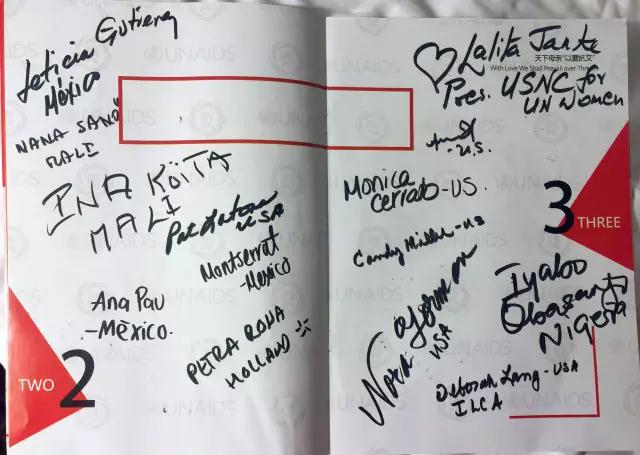 Leticia Gutierrez
México
NANA SANO
MALI
INA KOÏTA
MALI
USA
Montserrat
-Mexico
Ana Pau
-México.
PETRA RONA
HOLLAND
TWO 2
UNAIDS
Lalita Janke
天下母亲“以爱抗艾”
With Love We Shall Prevail over Three
Pres. USNC for
UN Women
U.S.
Monica
Cerrato-US.
Candy Miller-US
3 THREE
Iyabo
Obasanjo
Nigeria
Nora
USA
Deborah Lang-USA
ILCA